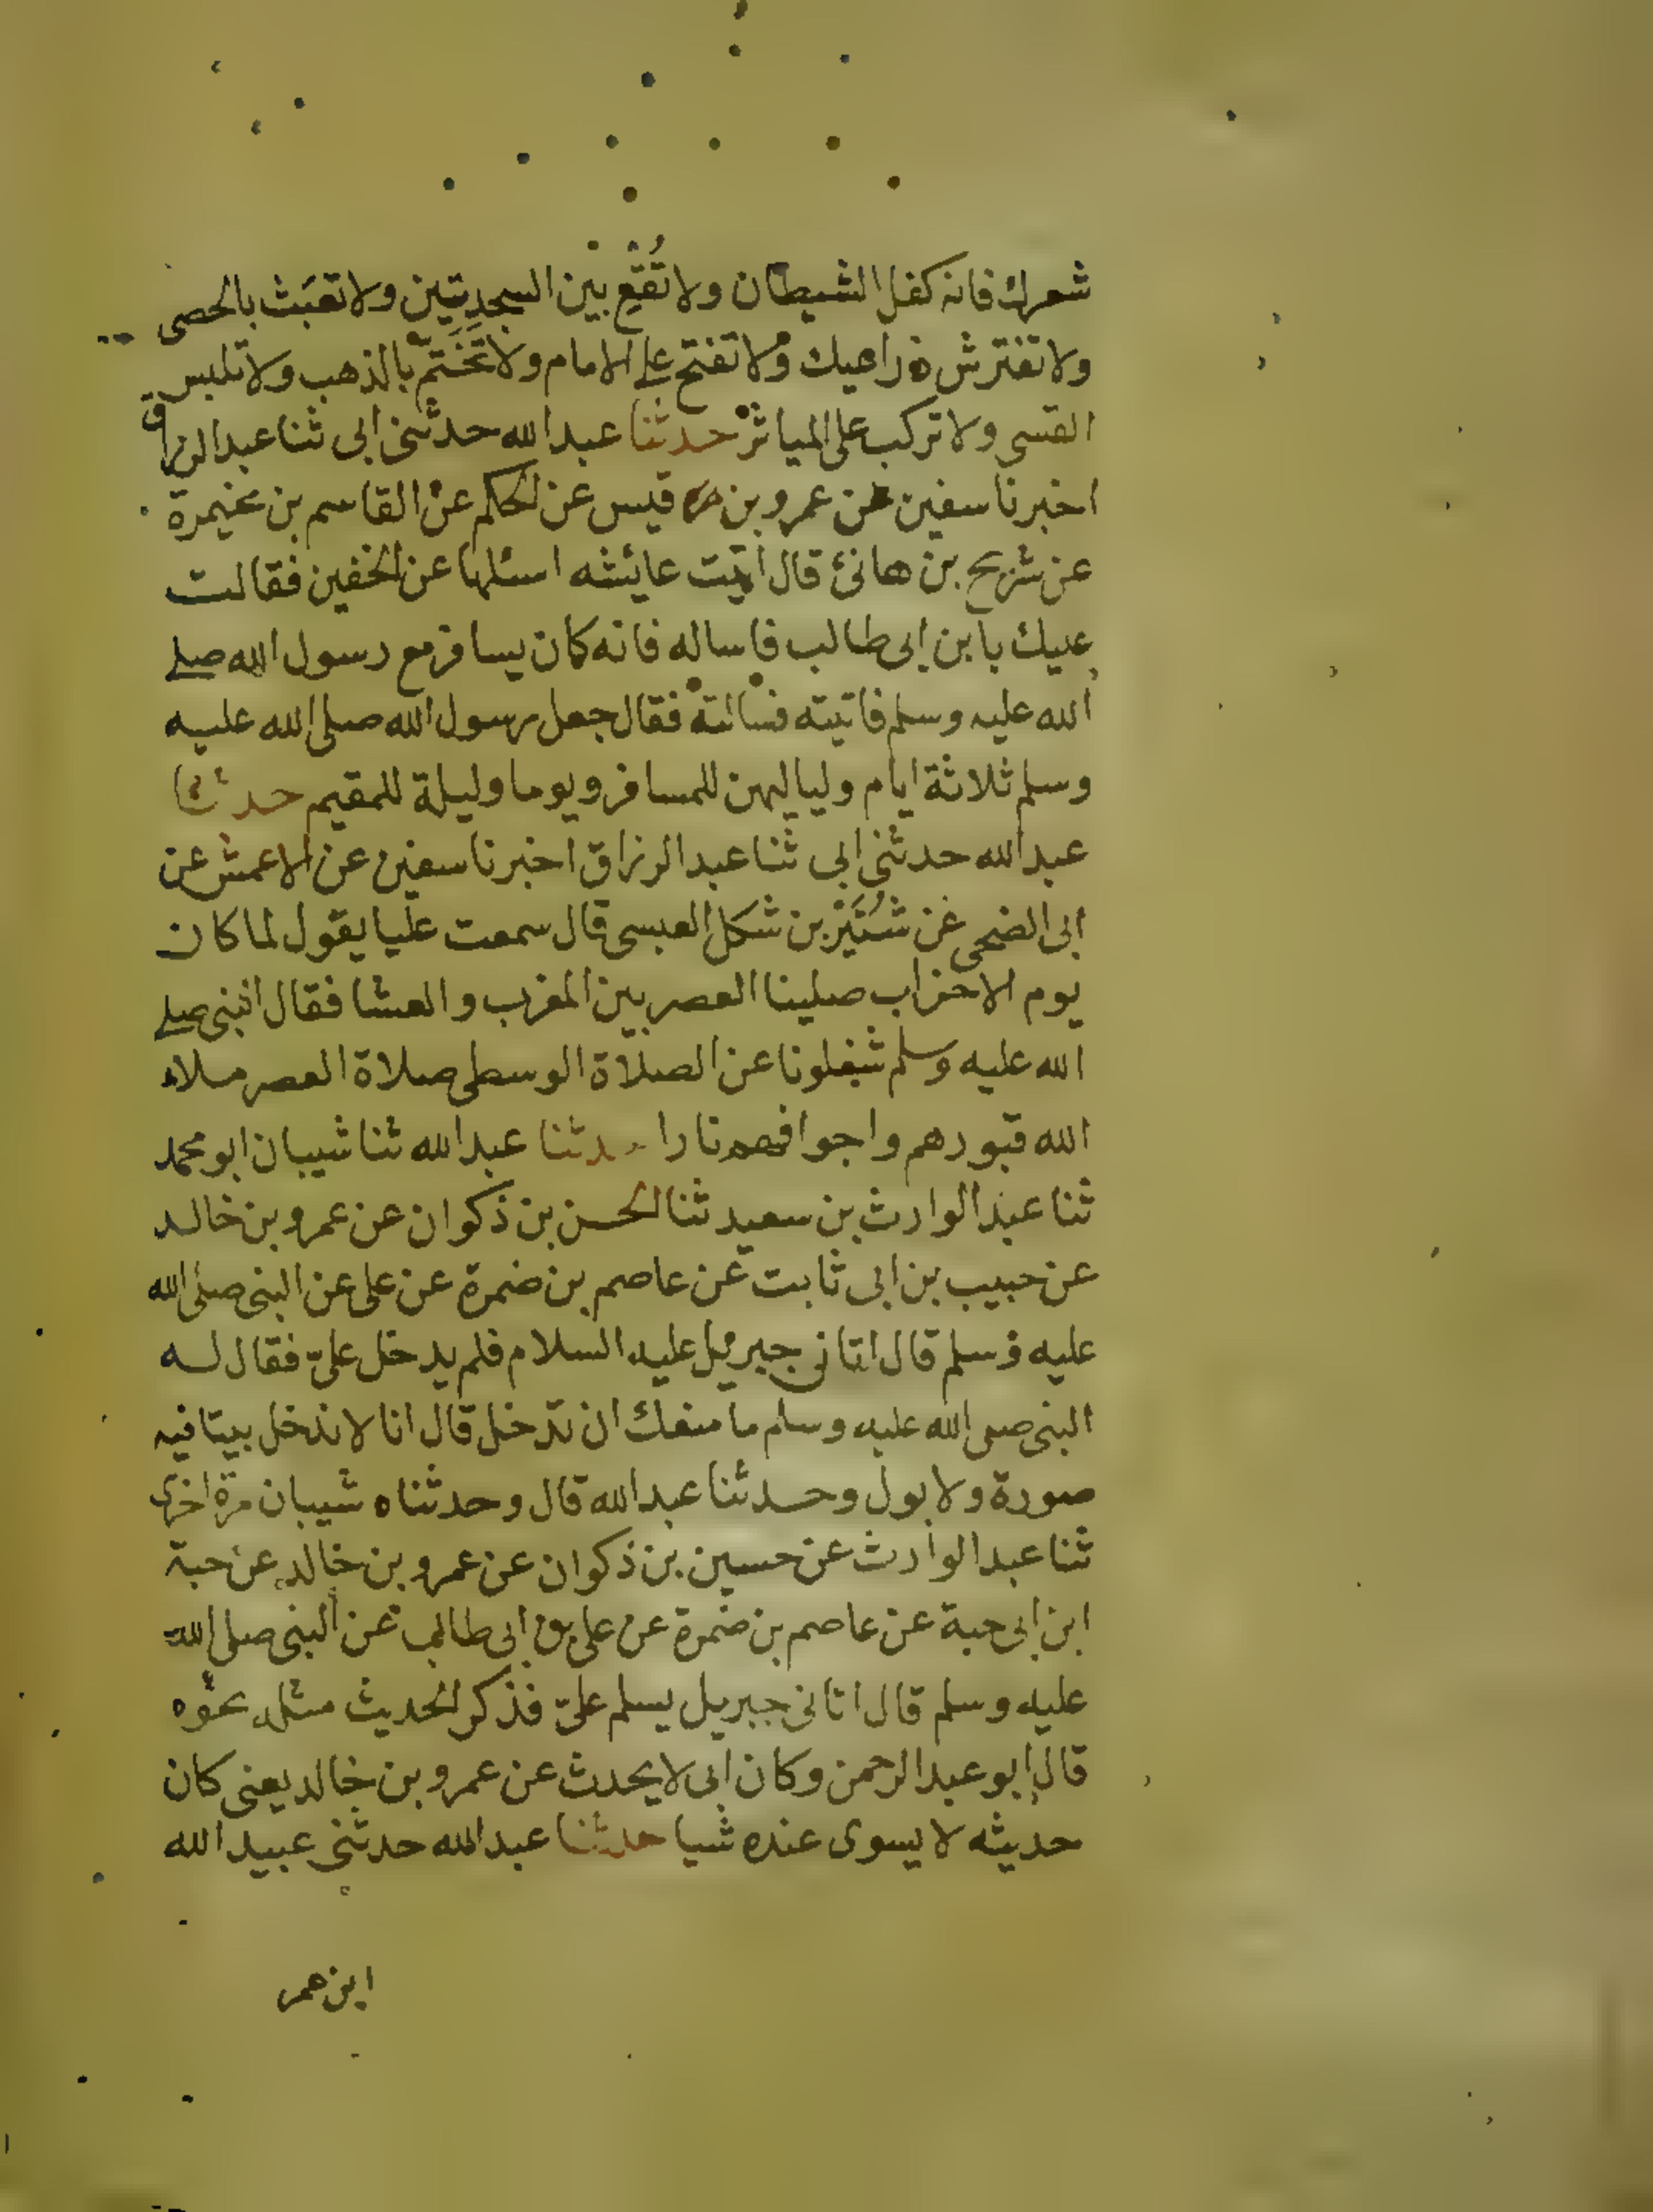 شعرك فانه كفل الشيطان ولا تُقْعِ بين السجدتين ولا تعبَث بالحصى
ولا تفترش ذراعيك ولا تفتح على الامام ولا تَخَتَّم بالذهب ولا تلبس
القسى ولا تركب على المياثر حدثنا عبد الله حدثنى ابى ثنا عبد الرزاق
اخبرنا سفين عن عمرو بن قيس عن الحكم عن القاسم بن مخيمرة
عن شريح بن هانئ قال اتيت عائشه اسئلها عن الخفين فقالت
عليك بابن ابى طالب فاساله فانه كان يسافر مع رسول الله صلى
الله عليه وسلم فاتيته فسالته فقال جعل رسول الله صلى الله عليه
وسلم ثلاثة ايام ولياليهن للمسافر ويوما وليلة للمقيم حدثنا
عبد الله حدثنى ابى ثنا عبد الرزاق اخبرنا سفين عن الاعمش عن
ابى الضحى عن شُتَيْر بن شكل العبسى قال سمعت عليا يقول لما كان
يوم الاحزاب صلينا العصر بين المغرب والعشا فقال النبى صلى
الله عليه وسلم شغلونا عن الصلاة الوسطى صلاة العصر ملاء
الله قبورهم واجوافهم نارا حدثنا عبد الله ثنا شيبان ابو محمد
ثنا عبد الوارث بن سعيد ثنا الحسن بن ذكوان عن عمرو بن خالد
عن حبيب بن ابى ثابت عن عاصم بن ضمرة عن على عن النبى صلى الله
عليه وسلم قال اتانى جبريل عليه السلام فلم يدخل علىّ فقال له
النبى صلى الله عليه وسلم ما منعك ان تدخل قال انا لا ندخل بيتا فيه
صورة ولا بول وحدثنا عبد الله قال وحدثناه شيبان مرة اخرى
ثنا عبد الوارث عن حسين بن ذكوان عن عمرو بن خالد عن حبة
ابن ابى حبة عن عاصم بن ضمرة عن على بن ابى طالب عن النبى صلى الله
عليه وسلم قال اتانى جبريل يسلم علىّ فذكر الحديث مثله نحوه
قال ابو عبد الرحمن وكان ابى لا يحدث عن عمرو بن خالد يعنى كان
حديثه لا يسوى عنده شيا حدثنا عبد الله حدثنى عبيد الله
ابن عمر